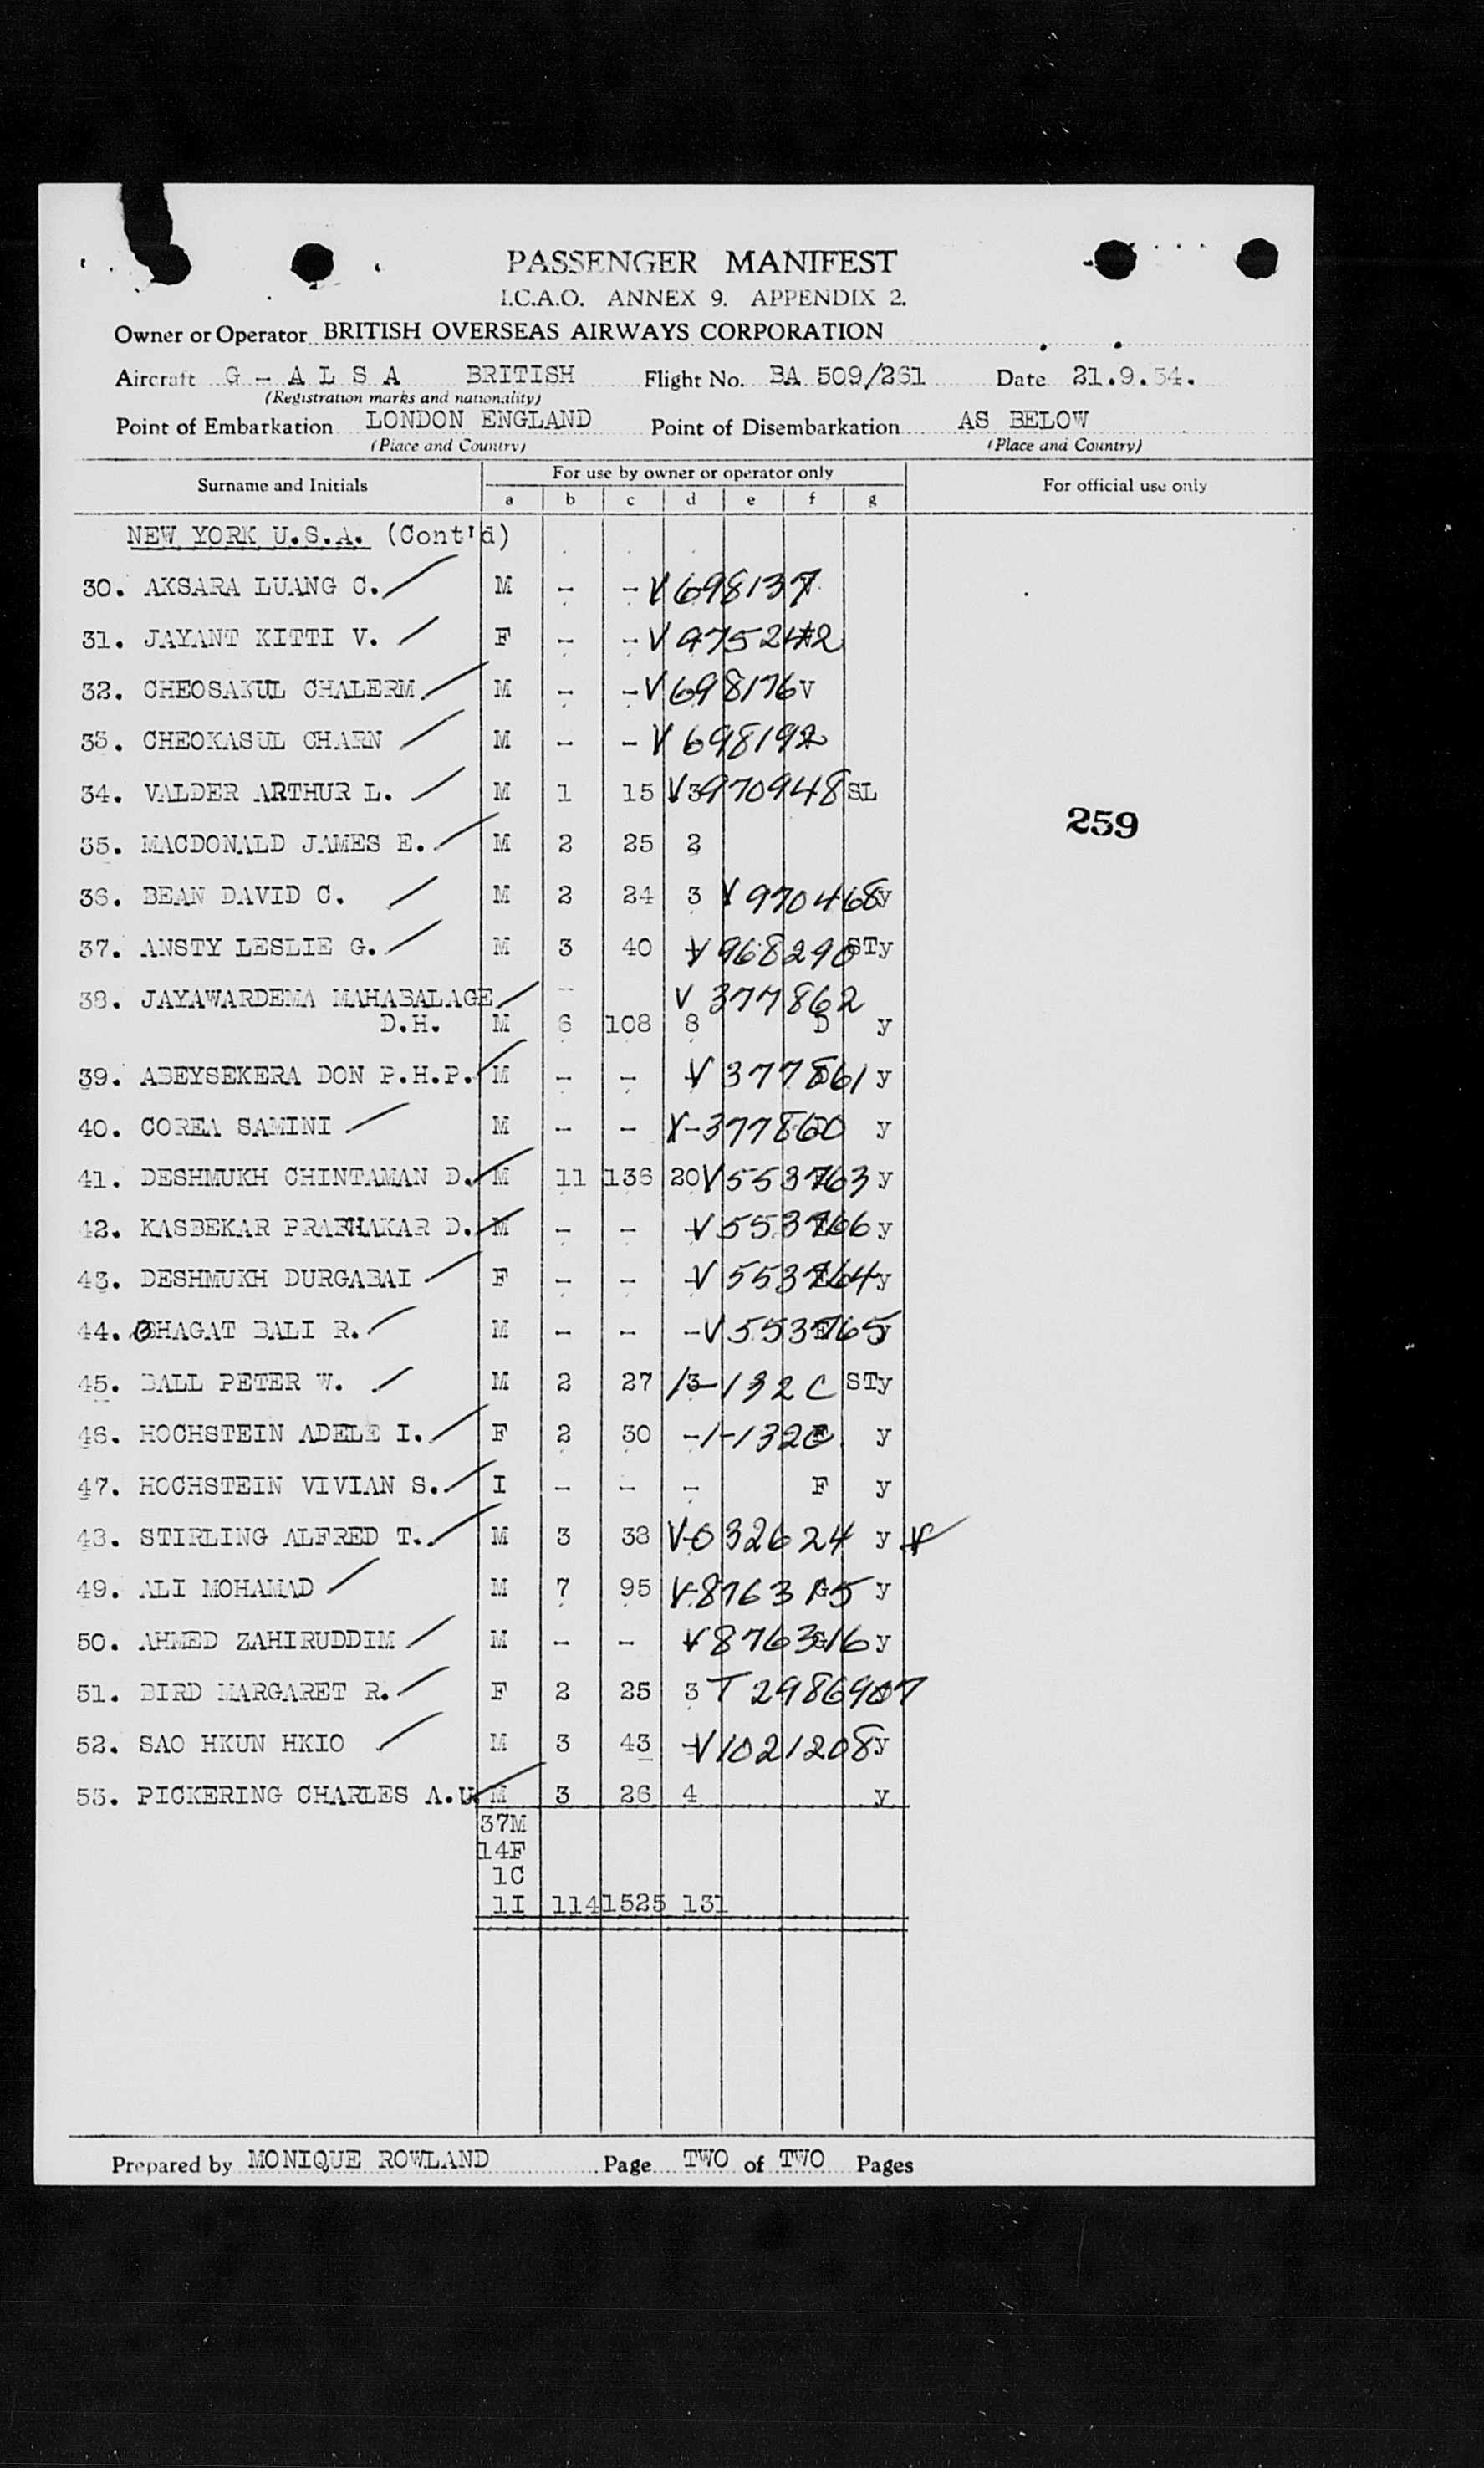 PASSENGER MANIFEST
I.C.A.O. ANNEX 9. APPENDIX 2.
Owner or Operator BRITISH OVERSEAS AIRWAYS CORPORATION
Aircraft G - A L S A BRITISH Flight No. BA 509/261 Date 21.9.54.
(Registration marks and nationality)
Point of Embarkation LONDON ENGLAND Point of Disembarkation AS BELOW
(Place and Country) (Place and Country)
Surname and Initials For use by owner or operator only For official use only
a b c d e f g
NEW YORK U.S.A. (Cont'd)
30. AKSARA LUANG C. M - - V 698137
31. JAYANT KITTI V. F - - V 975242
32. CHEOSAKUL CHALERM M - - V 698176 V
33. CHEOKASUL CHARN M - - V 698192
34. VALDER ARTHUR L. M 1 15 3 V 970948 SL
259
35. MACDONALD JAMES E. M 2 25 2
36. BEAN DAVID C. M 2 24 3 V 970468 y
37. ANSTY LESLIE G. M 3 40 V 968290 STy
38. JAYAWARDEMA MAHABALAGE V 377862
D.H. M 6 108 8 D y
39. ABEYSEKERA DON P.H.P. M - - V 377861 y
40. COREA SAMINI M - - V-377860 y
41. DESHMUKH CHINTAMAN D. M 11 136 20 V 553763 y
42. KASBEKAR PRABHAKAR D. M - - V 553766 y
43. DESHMUKH DURGABAI F - - V 553764 y
44. BHAGAT BALI R. M - - - V 553765 y
45. BALL PETER W. M 2 27 3 1-132C STy
46. HOCHSTEIN ADELE I. F 2 30 - 1-132C y
47. HOCHSTEIN VIVIAN S. I - - - F y
48. STIRLING ALFRED T. M 3 38 V-032624 y V
49. ALI MOHAMAD M 7 95 V-876315 y
50. AHMED ZAHIRUDDIM M - - V 876316 y
51. BIRD MARGARET R. F 2 25 3 T 2986907
52. SAO HKUN HKIO M 3 43 V 1021208 y
53. PICKERING CHARLES A.U. M 3 26 4 y
37M
14F
1C
1I 114 1525 131
Prepared by MONIQUE ROWLAND Page TWO of TWO Pages